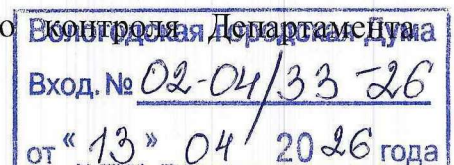 о контроля Департамента
Вологодская городская Дума
Вход. № 02-04/33-26
от "13" 04 2026 года